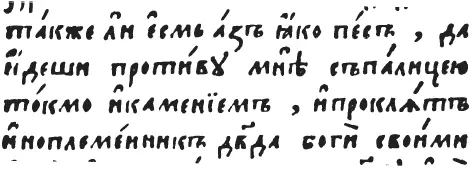 та́кже а҆́ни є҆́смь а́зъ ꙗ҆́ко пе́съ , да
и҆́деши проти́вꙋ мнѣ̀ съпа́лицею
то́кмо и҆каменїемъ , и҆проклѧ́тъ
и҆ноплеме́нникъ дв҃да боги̑ свои́ми